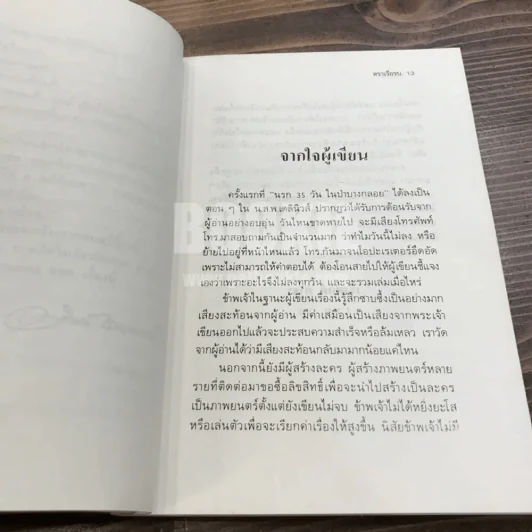 ตราเรียรบ 13
จากใจผู้เขียน
ครั้งแรกที่ "นรก 35 วัน ในป่าบางกลอย" ได้ลงเป็น
ตอน ๆ ใน น.ส.พ.เดลินิวส์ ปรากฏว่าได้รับการต้อนรับจาก
ผู้อ่านอย่างอบอุ่น วันไหนขาดหายไป จะมีเสียงโทรศัพท์
โทร.มาสอบถามกันเป็นจำนวนมาก ว่าทำไมวันนี้ไม่ลง หรือ
ย้ายไปอยู่ที่หน้าไหนแล้ว โทร.กันมาจนโอปะเรเตอร์อึดอัด
เพราะไม่สามารถให้คำตอบได้ ต้องโอนสายไปให้ผู้เขียนชี้แจง
เองว่าเพราะอะไรจึงไม่ลงทุกวัน และจะรวมเล่มเมื่อไหร่
ข้าพเจ้าในฐานะผู้เขียนเรื่องนี้รู้สึกซาบซึ้งเป็นอย่างมาก
เสียงสะท้อนจากผู้อ่าน มีค่าเสมือนเป็นเสียงจากพระเจ้า
เขียนออกไปแล้วจะประสบความสำเร็จหรือล้มเหลว เราวัด
จากผู้อ่านได้ว่ามีเสียงสะท้อนกลับมามากน้อยแค่ไหน
นอกจากนี้ยังมีผู้สร้างละคร ผู้สร้างภาพยนตร์หลาย
รายที่ติดต่อมาขอซื้อลิขสิทธิ์เพื่อจะนำไปสร้างเป็นละคร
เป็นภาพยนตร์ตั้งแต่ยังเขียนไม่จบ ข้าพเจ้าไม่ได้หยิ่งยะโส
หรือเล่นตัวเพื่อจะเรียกค่าเรื่องให้สูงขึ้น นิสัยข้าพเจ้าไม่มี